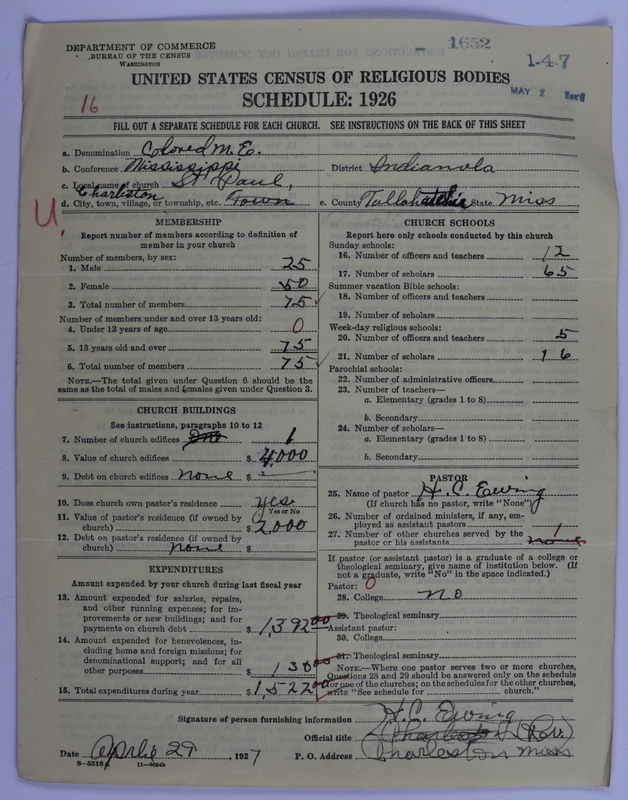 DEPARTMENT OF COMMERCE
BUREAU OF THE CENSUS
WASHINGTON
1652
1-4-7
MAY 2
16
UNITED STATES CENSUS OF RELIGIOUS BODIES
SCHEDULE: 1926
FILL OUT A SEPARATE SCHEDULE FOR EACH CHURCH. SEE INSTRUCTIONS ON THE BACK OF THIS SHEET
a. Denomination Colored M.E.
b. Conference Mississippi District Indianola
c. Local name of church St Paul,
Charleston
d. City, town, village, or township, etc. Town e. County Tallahatchie State Miss
U.
MEMBERSHIP
Report number of members according to definition of
member in your church
Number of members, by sex:
1. Male 25
2. Female 50
3. Total number of members 75
Number of members under and over 13 years old:
4. Under 13 years of age 0
5. 13 years old and over 75
6. Total number of members 75
NOTE.—The total given under Question 6 should be the
same as the total of males and females given under Question 3.
CHURCH BUILDINGS
See instructions, paragraphs 10 to 12
7. Number of church edifices One 1
8. Value of church edifices $ 4,000
9. Debt on church edifices none $
10. Does church own pastor's residence yes
Yes or No
11. Value of pastor's residence (if owned by
church) $ 2,000
12. Debt on pastor's residence (if owned by
church) none $
EXPENDITURES
Amount expended by your church during last fiscal year
13. Amount expended for salaries, repairs,
and other running expenses; for im-
provements or new buildings; and for
payments on church debt $ 1,392 00
14. Amount expended for benevolences, in-
cluding home and foreign missions; for
denominational support; and for all
other purposes $ 130 00
15. Total expenditures during year $ 1,522 00
CHURCH SCHOOLS
Report here only schools conducted by this church
Sunday schools:
16. Number of officers and teachers 12
17. Number of scholars 65
Summer vacation Bible schools:
18. Number of officers and teachers
19. Number of scholars
Week-day religious schools:
20. Number of officers and teachers 5
21. Number of scholars 16
Parochial schools:
22. Number of administrative officers
23. Number of teachers—
a. Elementary (grades 1 to 8)
b. Secondary
24. Number of scholars—
a. Elementary (grades 1 to 8)
b. Secondary
PASTOR
25. Name of pastor H. C. Ewing
(If church has no pastor, write "None")
26. Number of ordained ministers, if any, em-
ployed as assistant pastors
27. Number of other churches served by the 1
pastor or his assistants none
If pastor (or assistant pastor) is a graduate of a college or
theological seminary, give name of institution below. (If
not a graduate, write "No" in the space indicated.)
Pastor: 0
28. College no
29. Theological seminary
Assistant pastor:
30. College
31. Theological seminary
NOTE.—Where one pastor serves two or more churches,
Questions 28 and 29 should be answered only on the schedule
for one of the churches; on the schedules for the other churches,
write "See schedule for church."
Signature of person furnishing information H. C. Ewing
Official title Charleston (Rev.)
Date Aprile 29, 1927 P. O. Address Charleston Miss